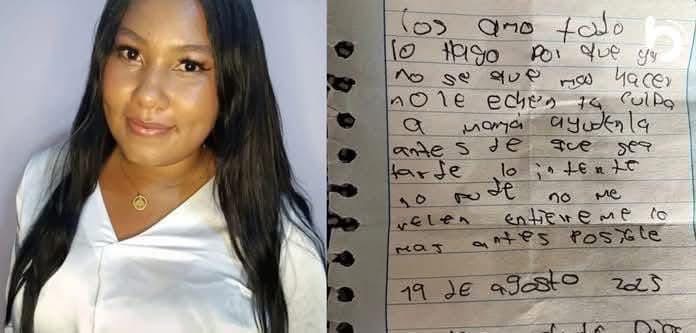 los amo todo
lo Hago Por que ya
no se que mas Hacer
no le echen la culpa
a mamá ayudenla
antes de que sea
tarde lo intente
no pude no me
velen entiereme lo
mas antes Posible
19 de agosto 2025